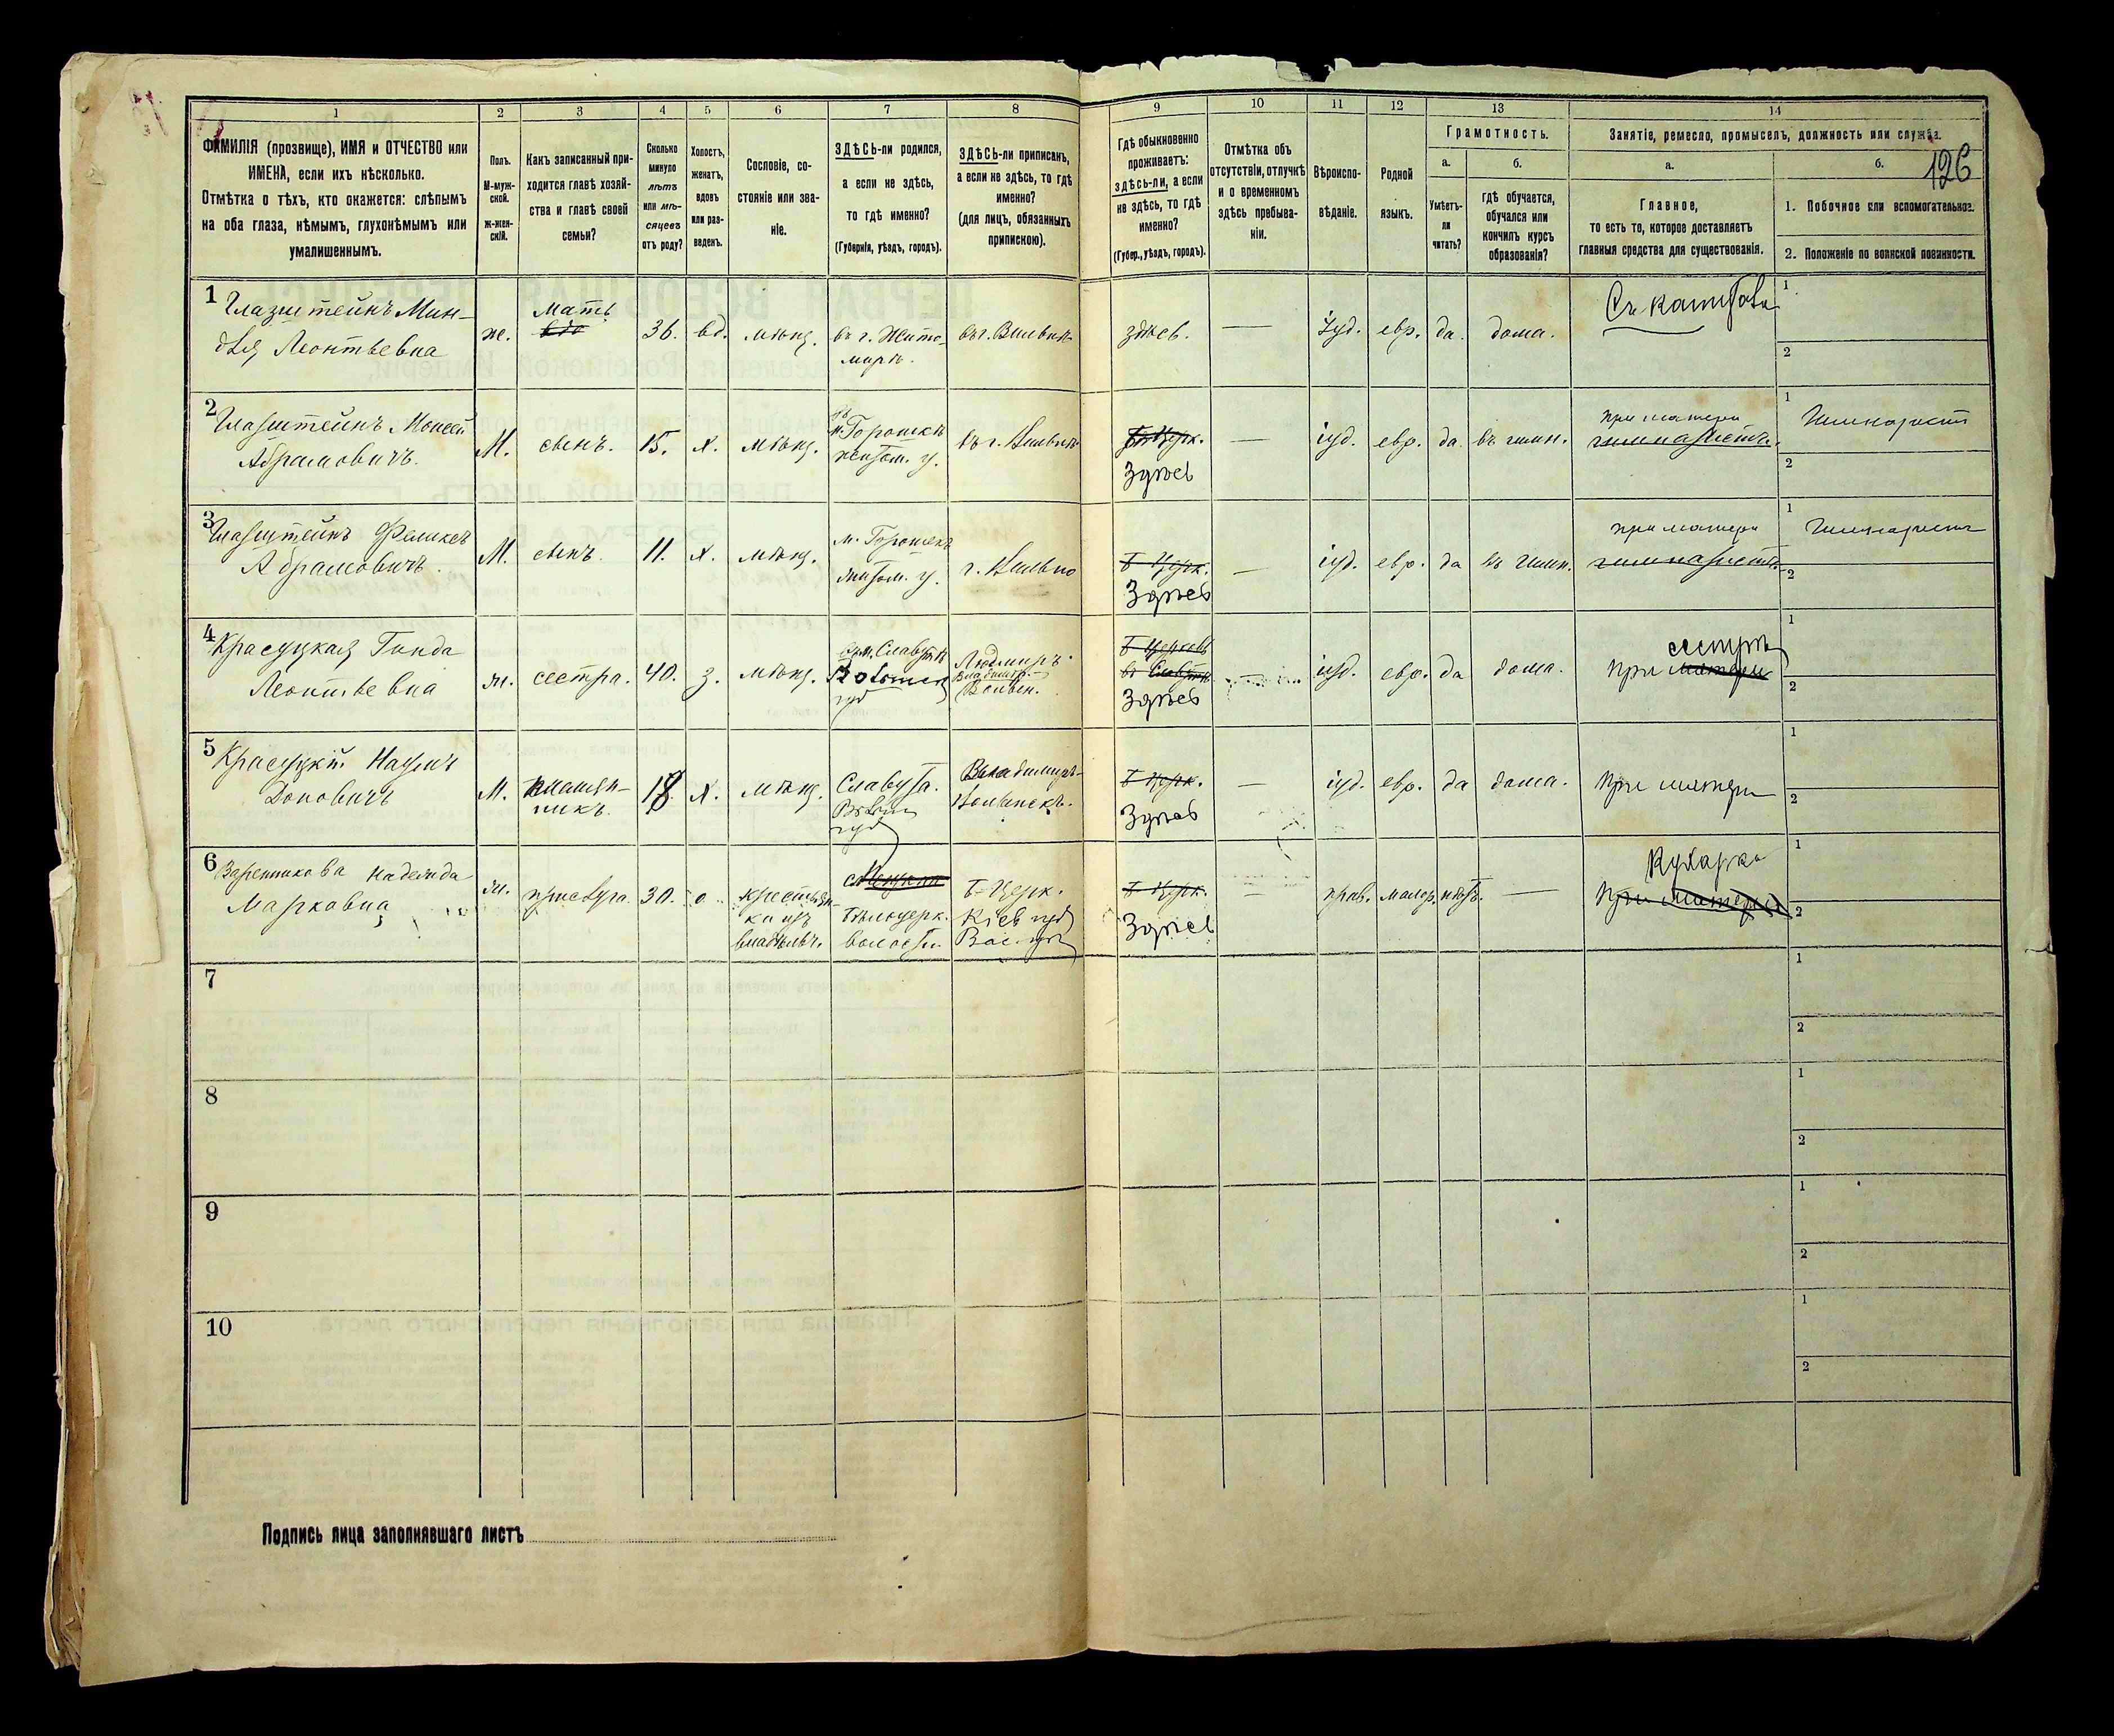 126
1 2 3 4 5 6 7 8 9 10 11 12 13 14
ФАМИЛІЯ (прозвище), ИМЯ и ОТЧЕСТВО или
ИМЕНА, если ихъ нѣсколько.
Отмѣтка о тѣхъ, кто окажется: слѣпымъ
на оба глаза, нѣмымъ, глухонѣмымъ или
умалишеннымъ.
Полъ.
М-муж-
ской.
Ж-жен-
скій.
Какъ записанный при-
ходится главѣ хозяй-
ства и главѣ своей
семьи?
Сколько
минуло
лѣтъ
или мѣ-
сяцевъ
отъ роду?
Холостъ,
женатъ,
вдовъ
или раз-
веденъ.
Сословіе, со-
стояніе или зва-
ніе.
ЗДѢСЬ-ли родился,
а если не здѣсь,
то гдѣ именно?
(Губернія, уѣздъ, городъ).
ЗДѢСЬ-ли приписанъ,
а если не здѣсь, то гдѣ
именно?
(для лицъ, обязанныхъ
припискою).
Гдѣ обыкновенно
проживаетъ:
здѣсь-ли, а если
не здѣсь, то гдѣ
именно?
(Губер., уѣздъ, городъ).
Отмѣтка объ
отсутствіи, отлучкѣ
и о временномъ
здѣсь пребыва-
ніи.
Вѣроиспо-
вѣданіе.
Родной
языкъ.
Грамотность.
а.
Умѣетъ-
ли
читать?
б.
гдѣ обучается,
обучался или
кончилъ курсъ
образованія?
Занятіе, ремесло, промыселъ, должность или служба.
а.
Главное,
то есть то, которое доставляетъ
главныя средства для существованія.
б.
1. Побочное или вспомогательное.
2. Положеніе по воинской повинности.
1
Глазштейнъ Мин-
для Леонтьевна
же.
Мать
вдо
36.
вд.
мѣщ.
въ г. Жито-
мирѣ.
въ г. Вильнѣ
здѣсь.
—
іуд.
евр.
да.
дома.
Съ капитала
1
2
2
Глазштейнъ Моисей
Абрамовичъ.
М.
сынъ.
15.
х.
мѣщ.
м. Горошкѣ
житом. у.
въ г. Вильнѣ
Б-Церк.
Здѣсь
—
іуд.
евр.
да
въ гимн.
при матери
гимназистъ.
1 Гимназист
2
3
Глазштейнъ Феликсъ
Абрамовичъ.
М.
сынъ.
11.
х.
мѣщ.
м. Горошекъ
житом. у.
г. Вильно
Б-Церк.
Здѣсь
—
іуд.
евр.
да
въ гимн.
при матери
гимназистъ.
1 Гимназистъ
2
4
Красуцкая Гинда
Леонтьевна
ж.
сестра.
40.
з.
мѣщ.
м. Славутѣ
Волынск
губ
Владимір.
Волын.
Б-Церковь
Здѣсь
іуд.
евр.
да
дома.
сестрѣ
При матери
1
2
5
Красуцкій Наумъ
Доновичъ
М.
племян-
никъ.
18
х.
мѣщ.
Славута.
Волын
губ
Владимиръ-
Волынскъ.
Б-Церк.
Здѣсь
—
іуд.
евр.
да
дома.
При матери
1
2
6
Вареникова Надежда
Марковна
ж.
прислуга.
30.
крестьян-
ка изъ
владѣльч.
Бѣлоцерк.
волости.
Б-Церк.
Кіев губ
Вас. у.
Б-Церк.
Здѣсь
прав.
малор.
нѣтъ.
—
Кухарка
При матери
1
2
7
1
2
8
1
2
9
1
2
10
1
2
Подпись лица заполнявшаго листъ